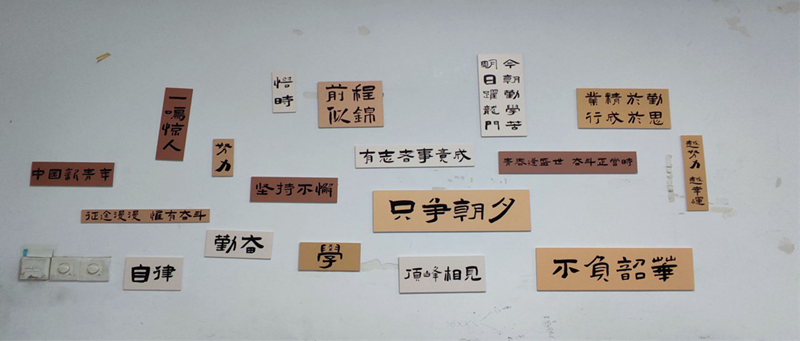 惜時
今朝勤學苦
明日躍龍門
前程
似錦
一鳴惊人
業精於勤
行成於思
努力
有志者事竟成
青春逢盛世 奋斗正當時
越努力 越幸運
中国新青年
坚持不懈
只争朝夕
征途漫漫 惟有奋斗
勤奋
學
自律
頂峰相見
不負韶華